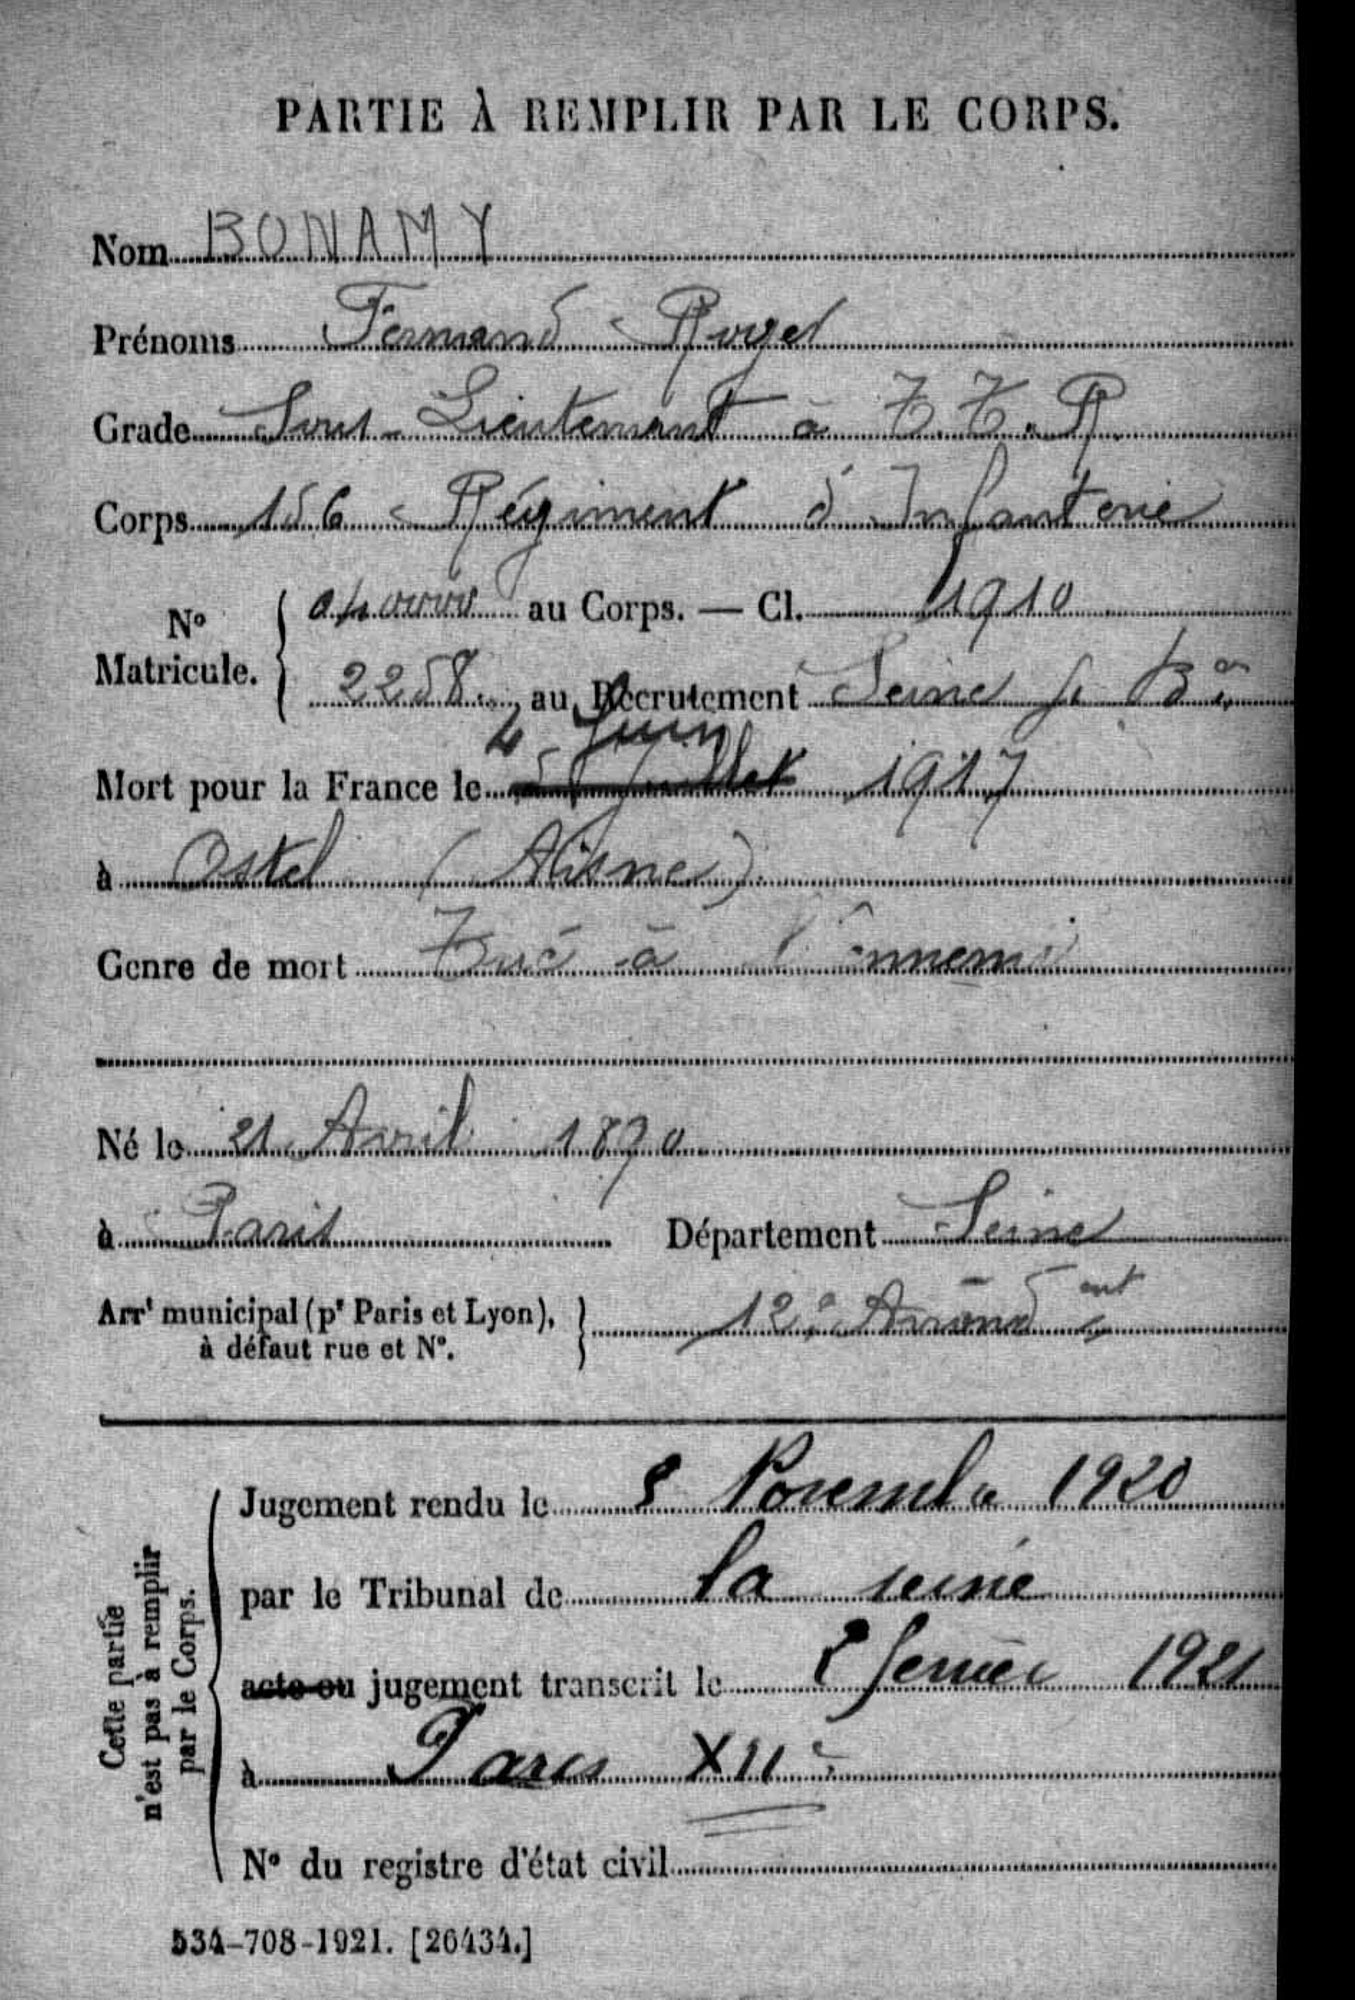 PARTIE À REMPLIR PAR LE CORPS.
Nom BONAMY
Prénoms Fernand Roger
Grade Sous-Lieutenant à T.T.R
Corps 156e Régiment d'Infanterie
No Matricule. au Corps. — Cl. 1910
2258. au Recrutement Seine 4e Bau
4 Juin
Mort pour la France le 5 Juillet 1917
à Ostel (Aisne).
Genre de mort Tué à l'ennemi
Né le 21 Avril 1890
à Paris Département Seine
Arrt municipal (pr Paris et Lyon), à défaut rue et No. 12e Arrondent
Cette partie n'est pas à remplir par le Corps.
Jugement rendu le 8 Novembre 1920
par le Tribunal de la seine
acte ou jugement transcrit le 1921
à Paris XIIe
No du registre d'état civil
534-708-1921. [26434.]